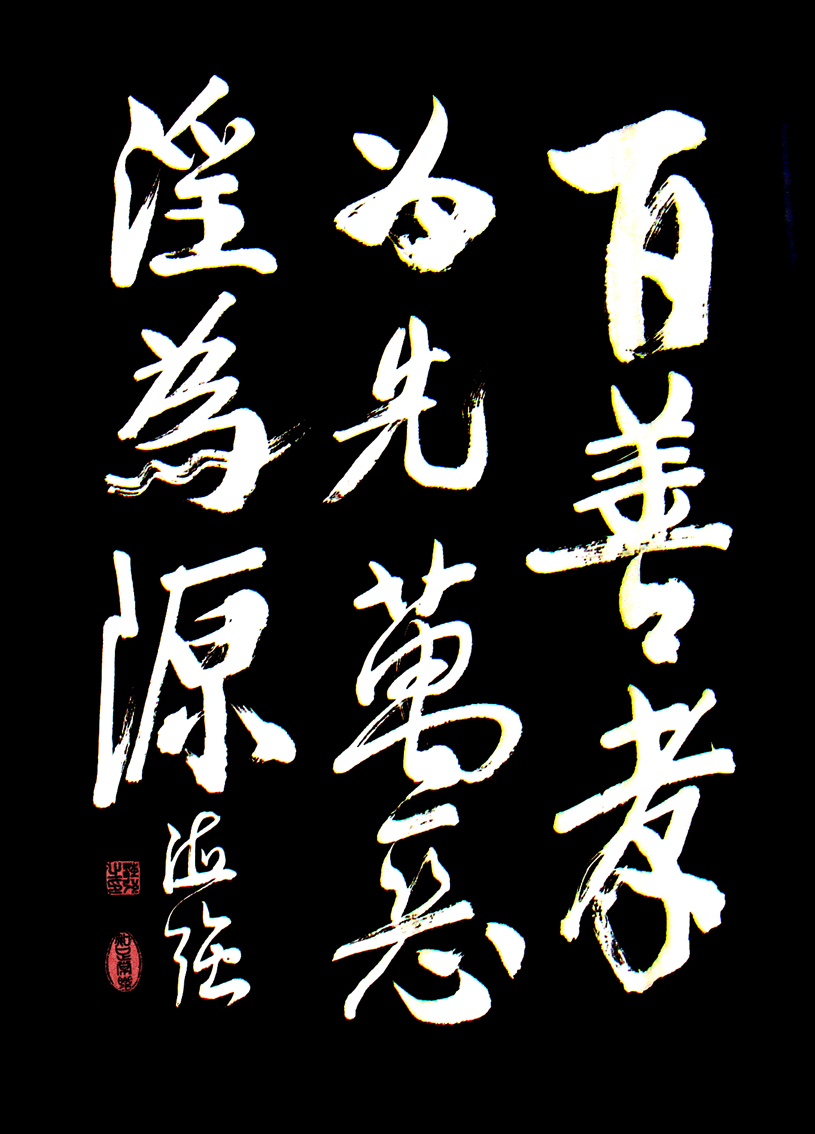 百善孝
为先萬惡
淫為源
海强